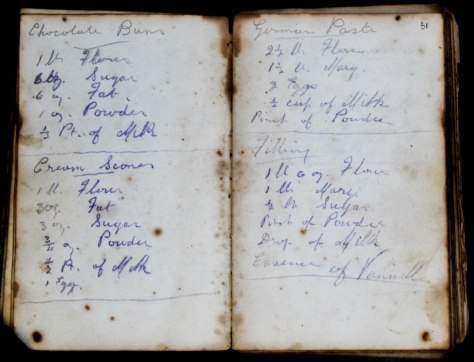 Chocolate Buns
1 lb. Flour
6 oz. Sugar
6 oz. Fat.
1 oz. Powder
½ Pt. of Milk
Cream Scones
1 lb. Flour
3 oz. Fat
3 oz. Sugar
oz. Powder
½ Pt. of Milk
1 Egg.
31
German Paste
2½ lb. Flour
1½ lb. Marg.
Eggs
½ cup of Milk
Pinch of Powder
Filling
1 lb 6 oz Flour
1 lb. Marg.
lb Sugar
Pinch of Powder
Drop of Milk
Essence of Vanilla